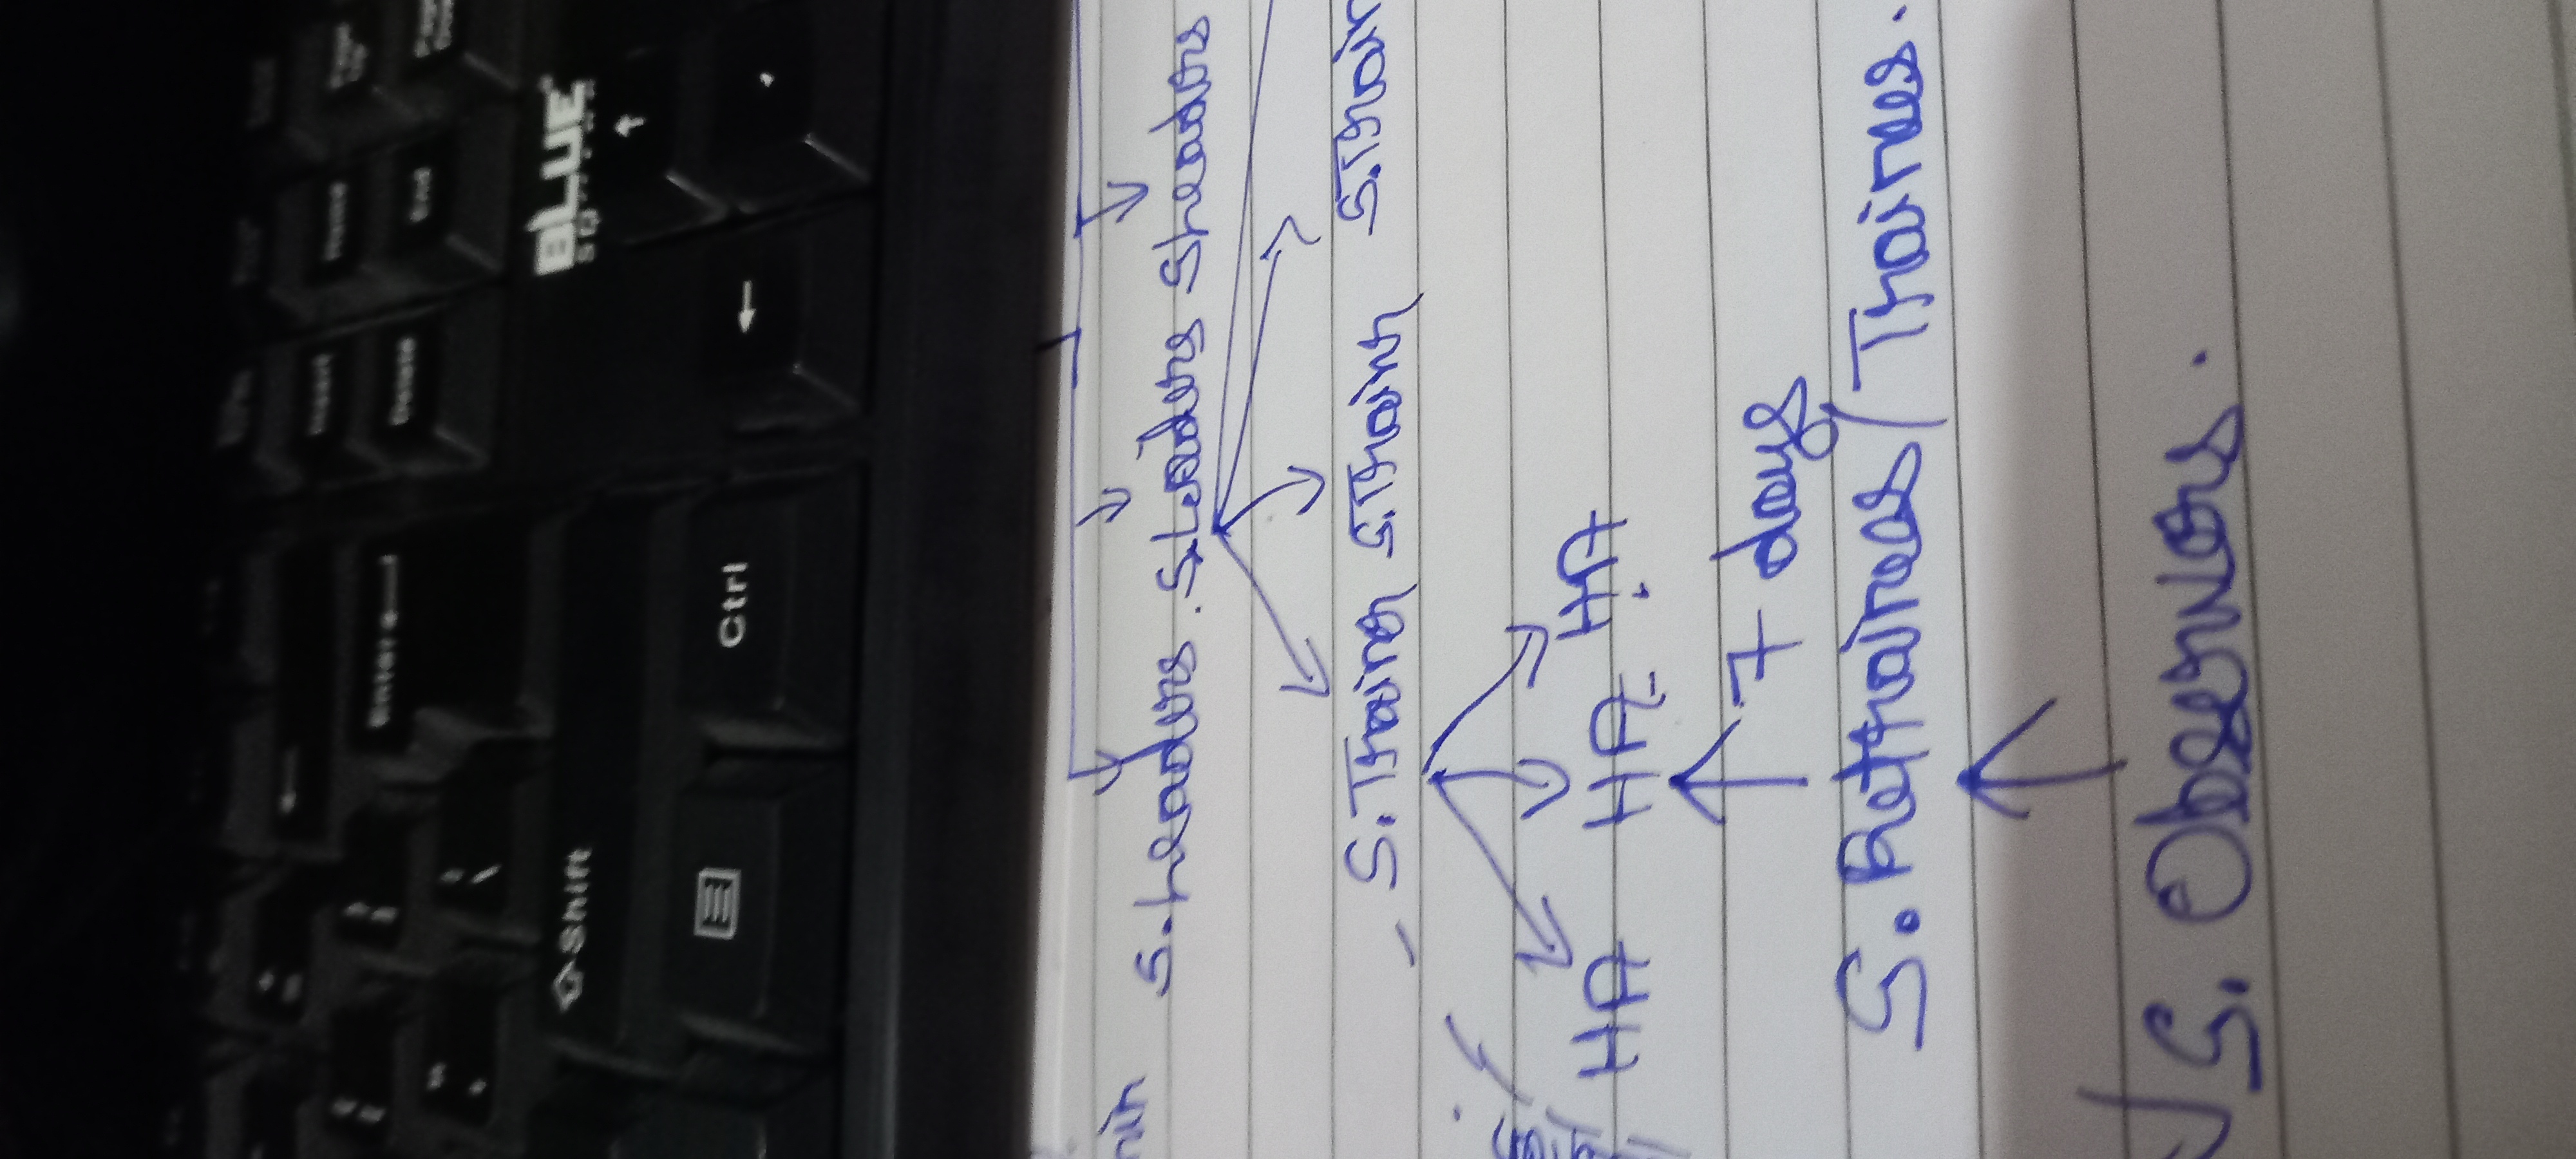 Insert Home Page Up
Enter
Delete End Page
Shift
BLUE
Ctrl
S.Leaders. S.Leaders SLeaders
S.Trainer S.Trainr S.Train
HA HA HA
7 days
S. Retrainees/Trainees.
S. Observers.